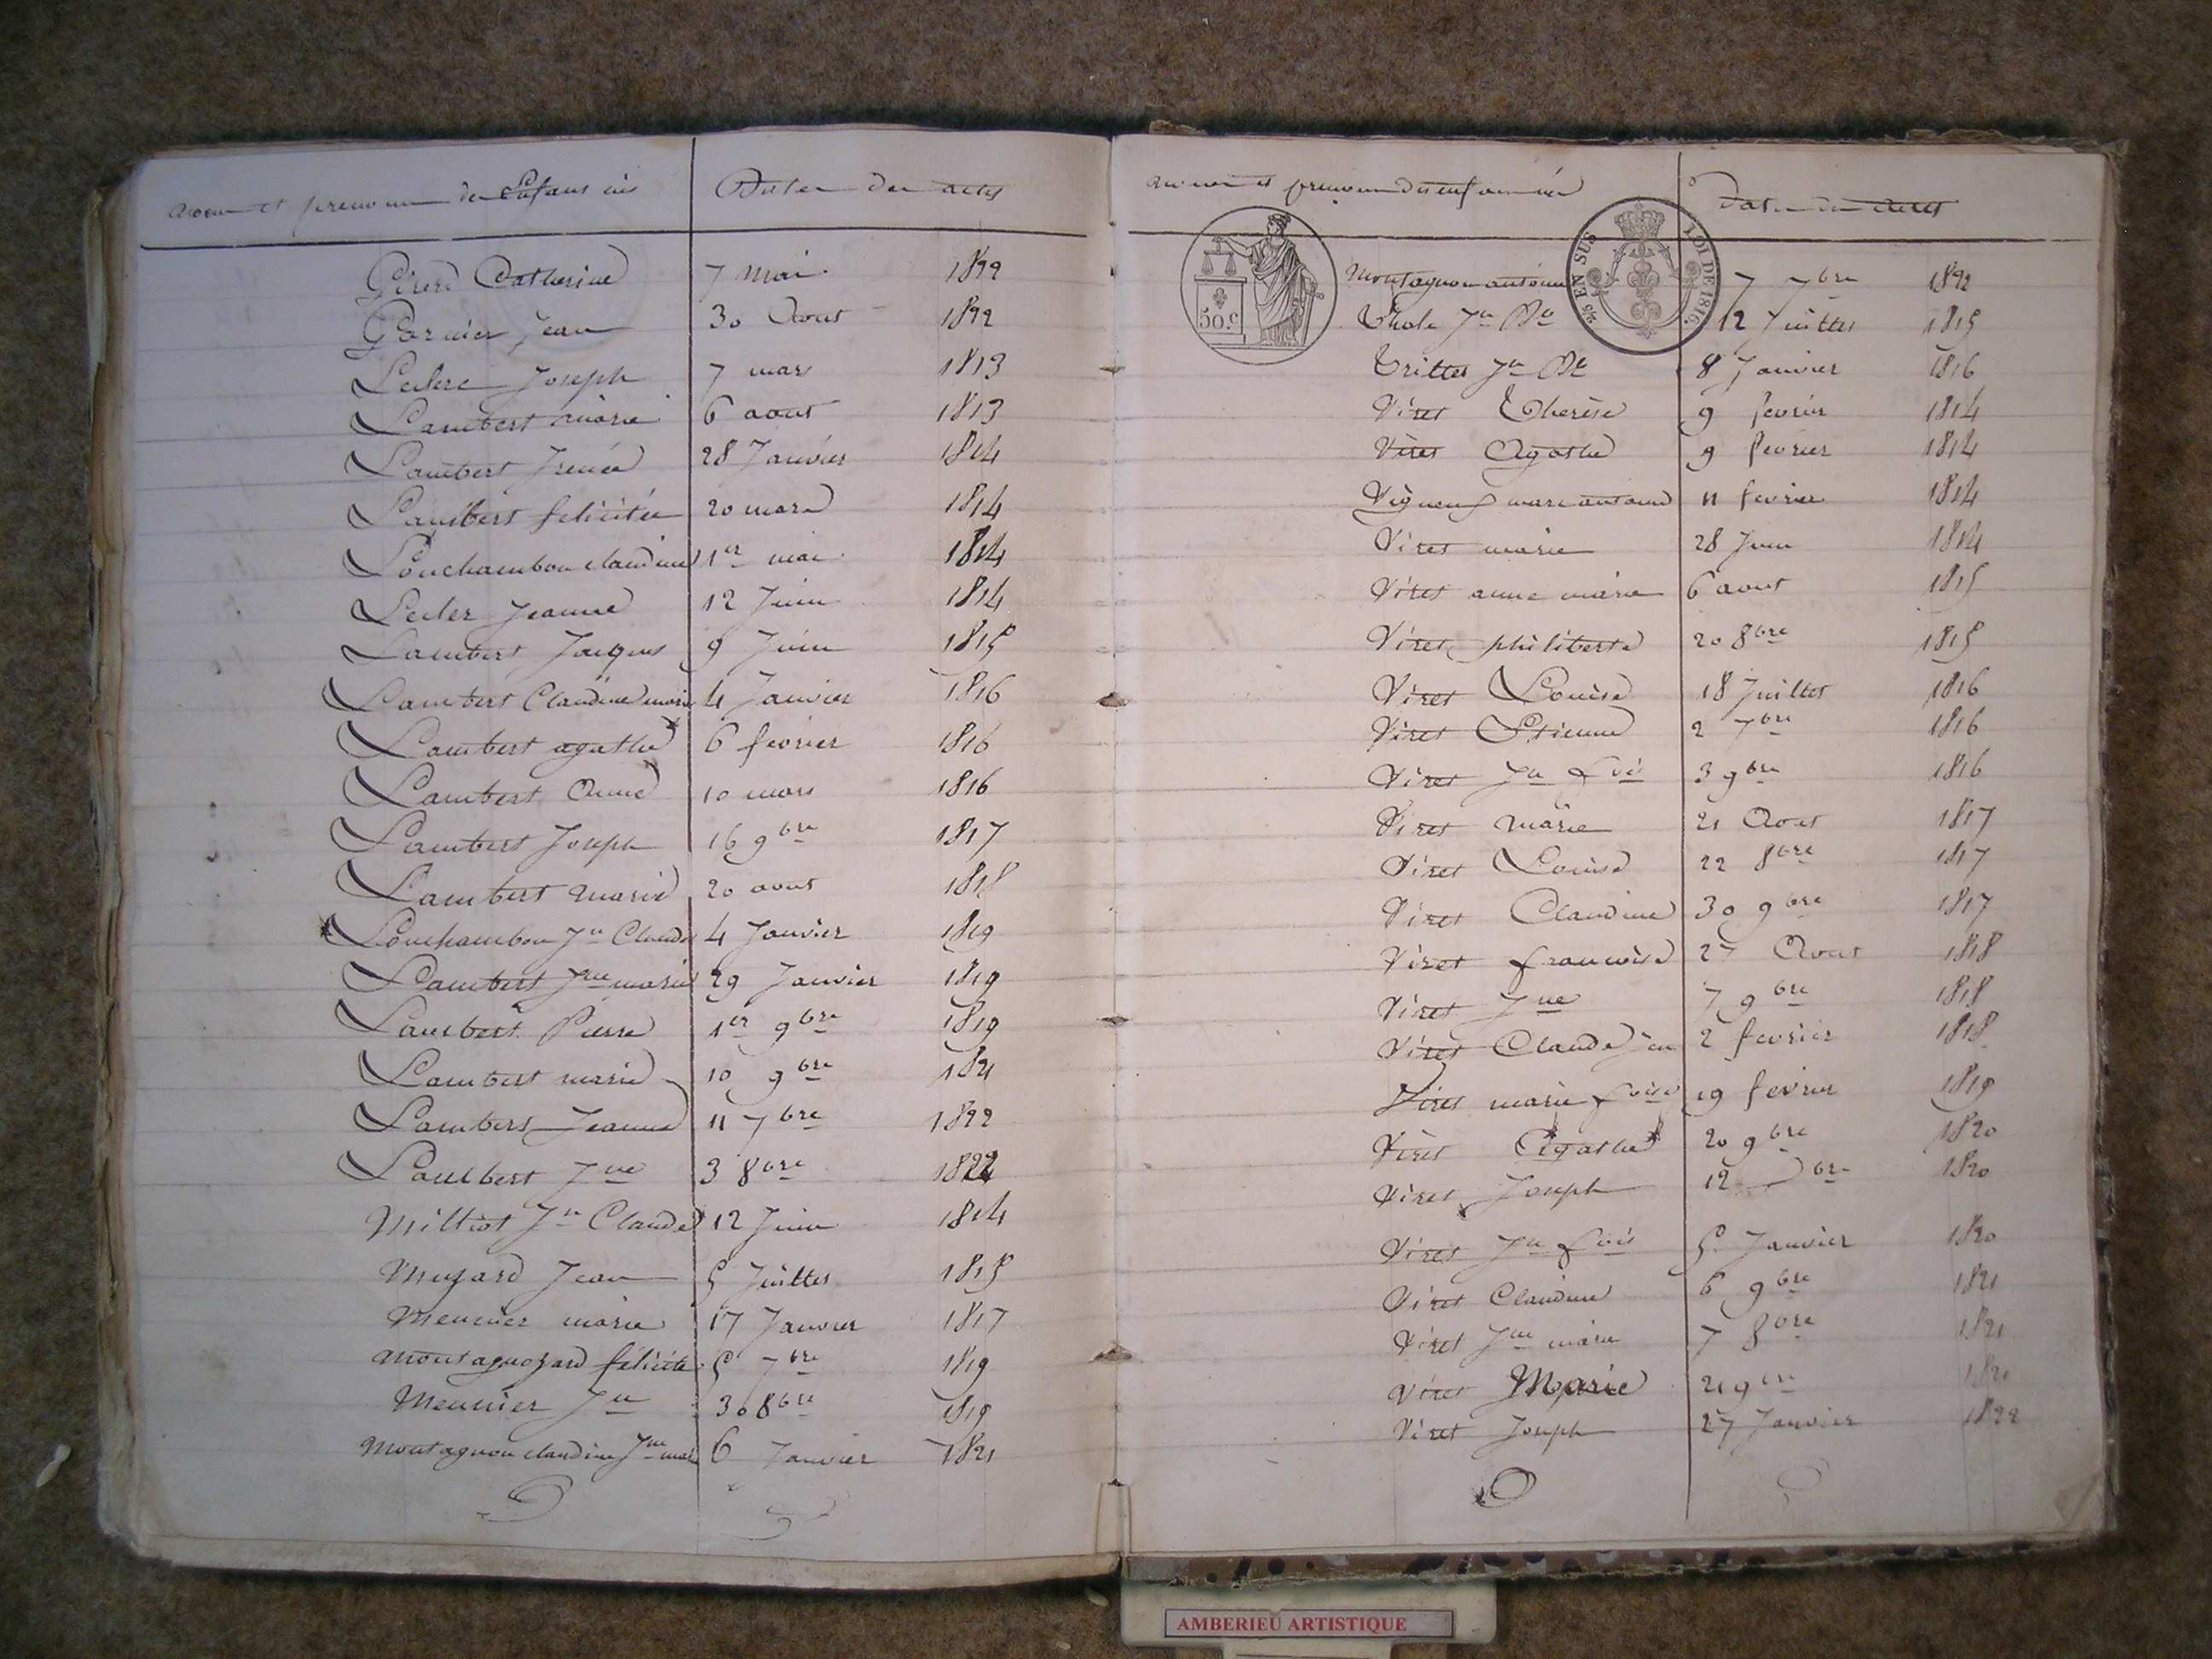 nom et prenom des Enfans nés Dates des actes
Girerd Catherine 7 mai 1822
Garnier Jean 30 Aout 1822
Leclerc Joseph 7 mars 1813
Lambert marie 6 aout 1813
Lambert Irenée 28 Janvier 1814
Lambert felicitée 20 mars 1814
Louchambon claudine 1er mai 1814
Lecler Jeanne 12 Juin 1814
Lambert Jacques 9 Juin 1815
Lambert Claudine marie 4 Janvier 1816
Lambert agathe 6 fevrier 1816
Lambert Anne 10 mars 1816
Lambert Joseph 16 9bre 1817
Lambert marie 20 aout 1818
Louchambon Jn Claude 4 Janvier 1819
Lambert Jne marie 29 Janvier 1819
Lambert Pierre 1er 9bre 1819
Lambert marie 10 9bre 1821
Lambert Jeanne 11 7bre 1822
Lambert Jne 3 8bre 1822
Milliot Jn Claude 12 Juin 1814
Jean 5 Juillet 1815
Meunier marie 17 Janvier 1817
félicité 5 7bre 1819
Meunier Jn 30 8bre 1819
Montagnon claudine Jne marie 6 Janvier 1821
nom et prenom des enfans nés Dates des actes
50 c.
25/c EN SUS LOI DE 1816.
Montagnon antoine 7 7bre 1822
Jn Bte 12 Juillet 1815
Jn Bte 8 Janvier 1816
Viret Therése 9 fevrier 1814
Viret Agathe 9 fevrier 1814
marc antoine 11 fevrier 1814
Viret marie 28 Juin 1814
Viret anne marie 6 aout 1815
Viret philiberte 20 8bre 1815
Viret Louise 18 Juillet 1816
Viret Etienne 2 7bre 1816
Viret Jn fois 3 9bre 1816
Viret marie 21 Aout 1817
Viret Louise 22 8bre 1817
Viret Claudine 30 9bre 1817
Viret francoise 27 Aout 1818
Viret Jne 7 9bre 1818
Viret Claude Jn 2 fevrier 1818
Viret marie foise 19 fevrier 1819
Viret Agathe 20 9bre 1820
Viret Joseph 12 bre 1820
Viret Jn fois 5 Janvier 1820
Viret Claudine 6 9bre 1821
Viret Jne marie 7 8bre 1821
Viret Marie 21 9bre 1821
Viret Joseph 27 Janvier 1822
AMBERIEU ARTISTIQUE